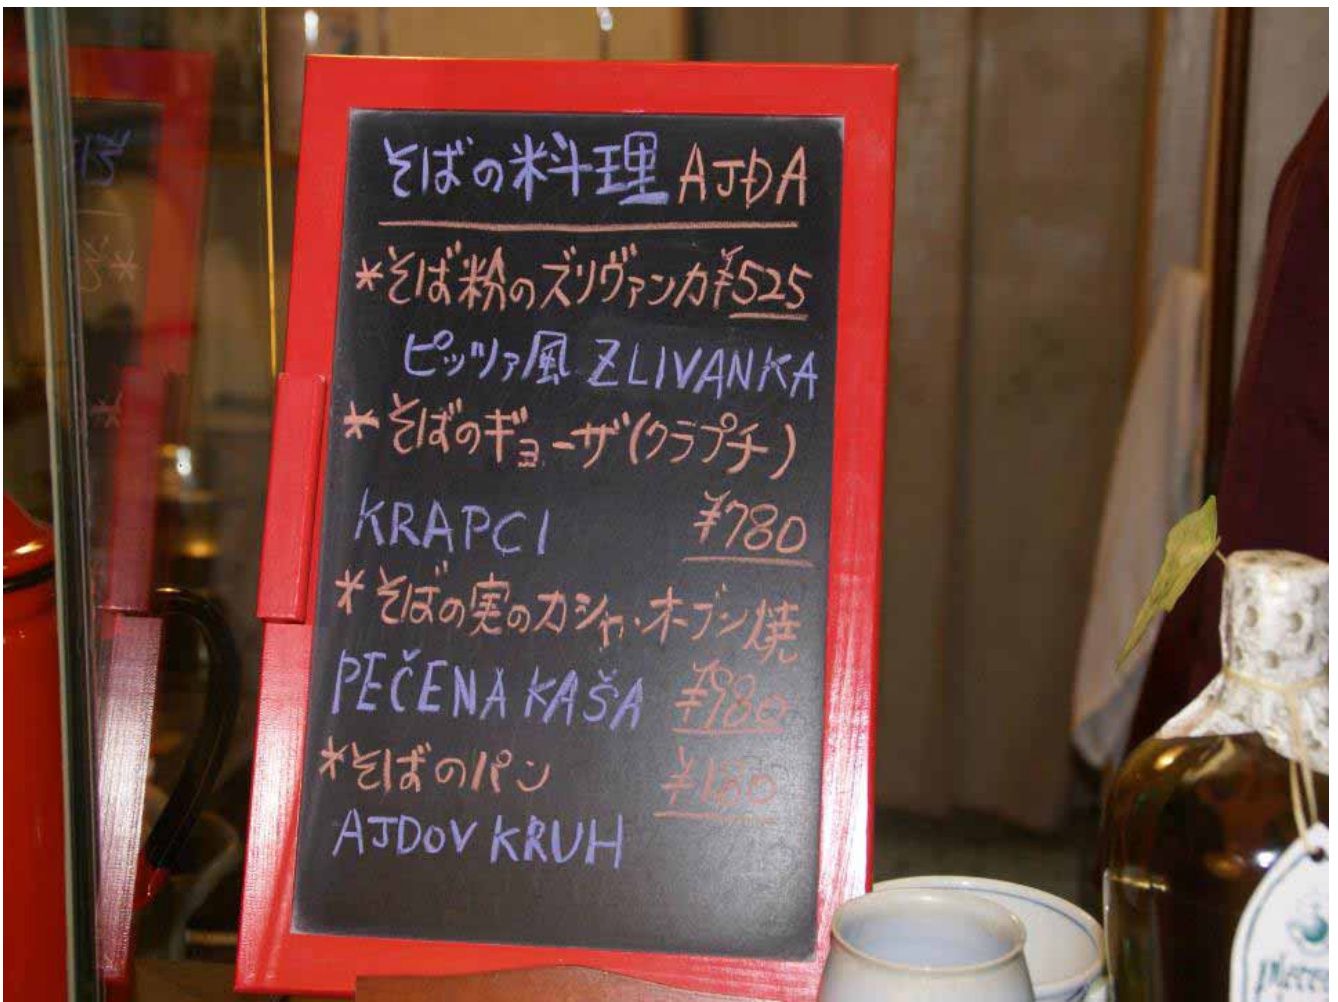 そばの料理 AJDA
*そば粉のズリヴァンカ ¥525
ピッツァ風 ZLIVANKA
*そばのギョーザ(クラプチ)
KRAPCI ¥780
*そばの実のカシャ・オーブン焼
PEČENA KAŠA ¥980
*そばのパン ¥180
AJDOV KRUH